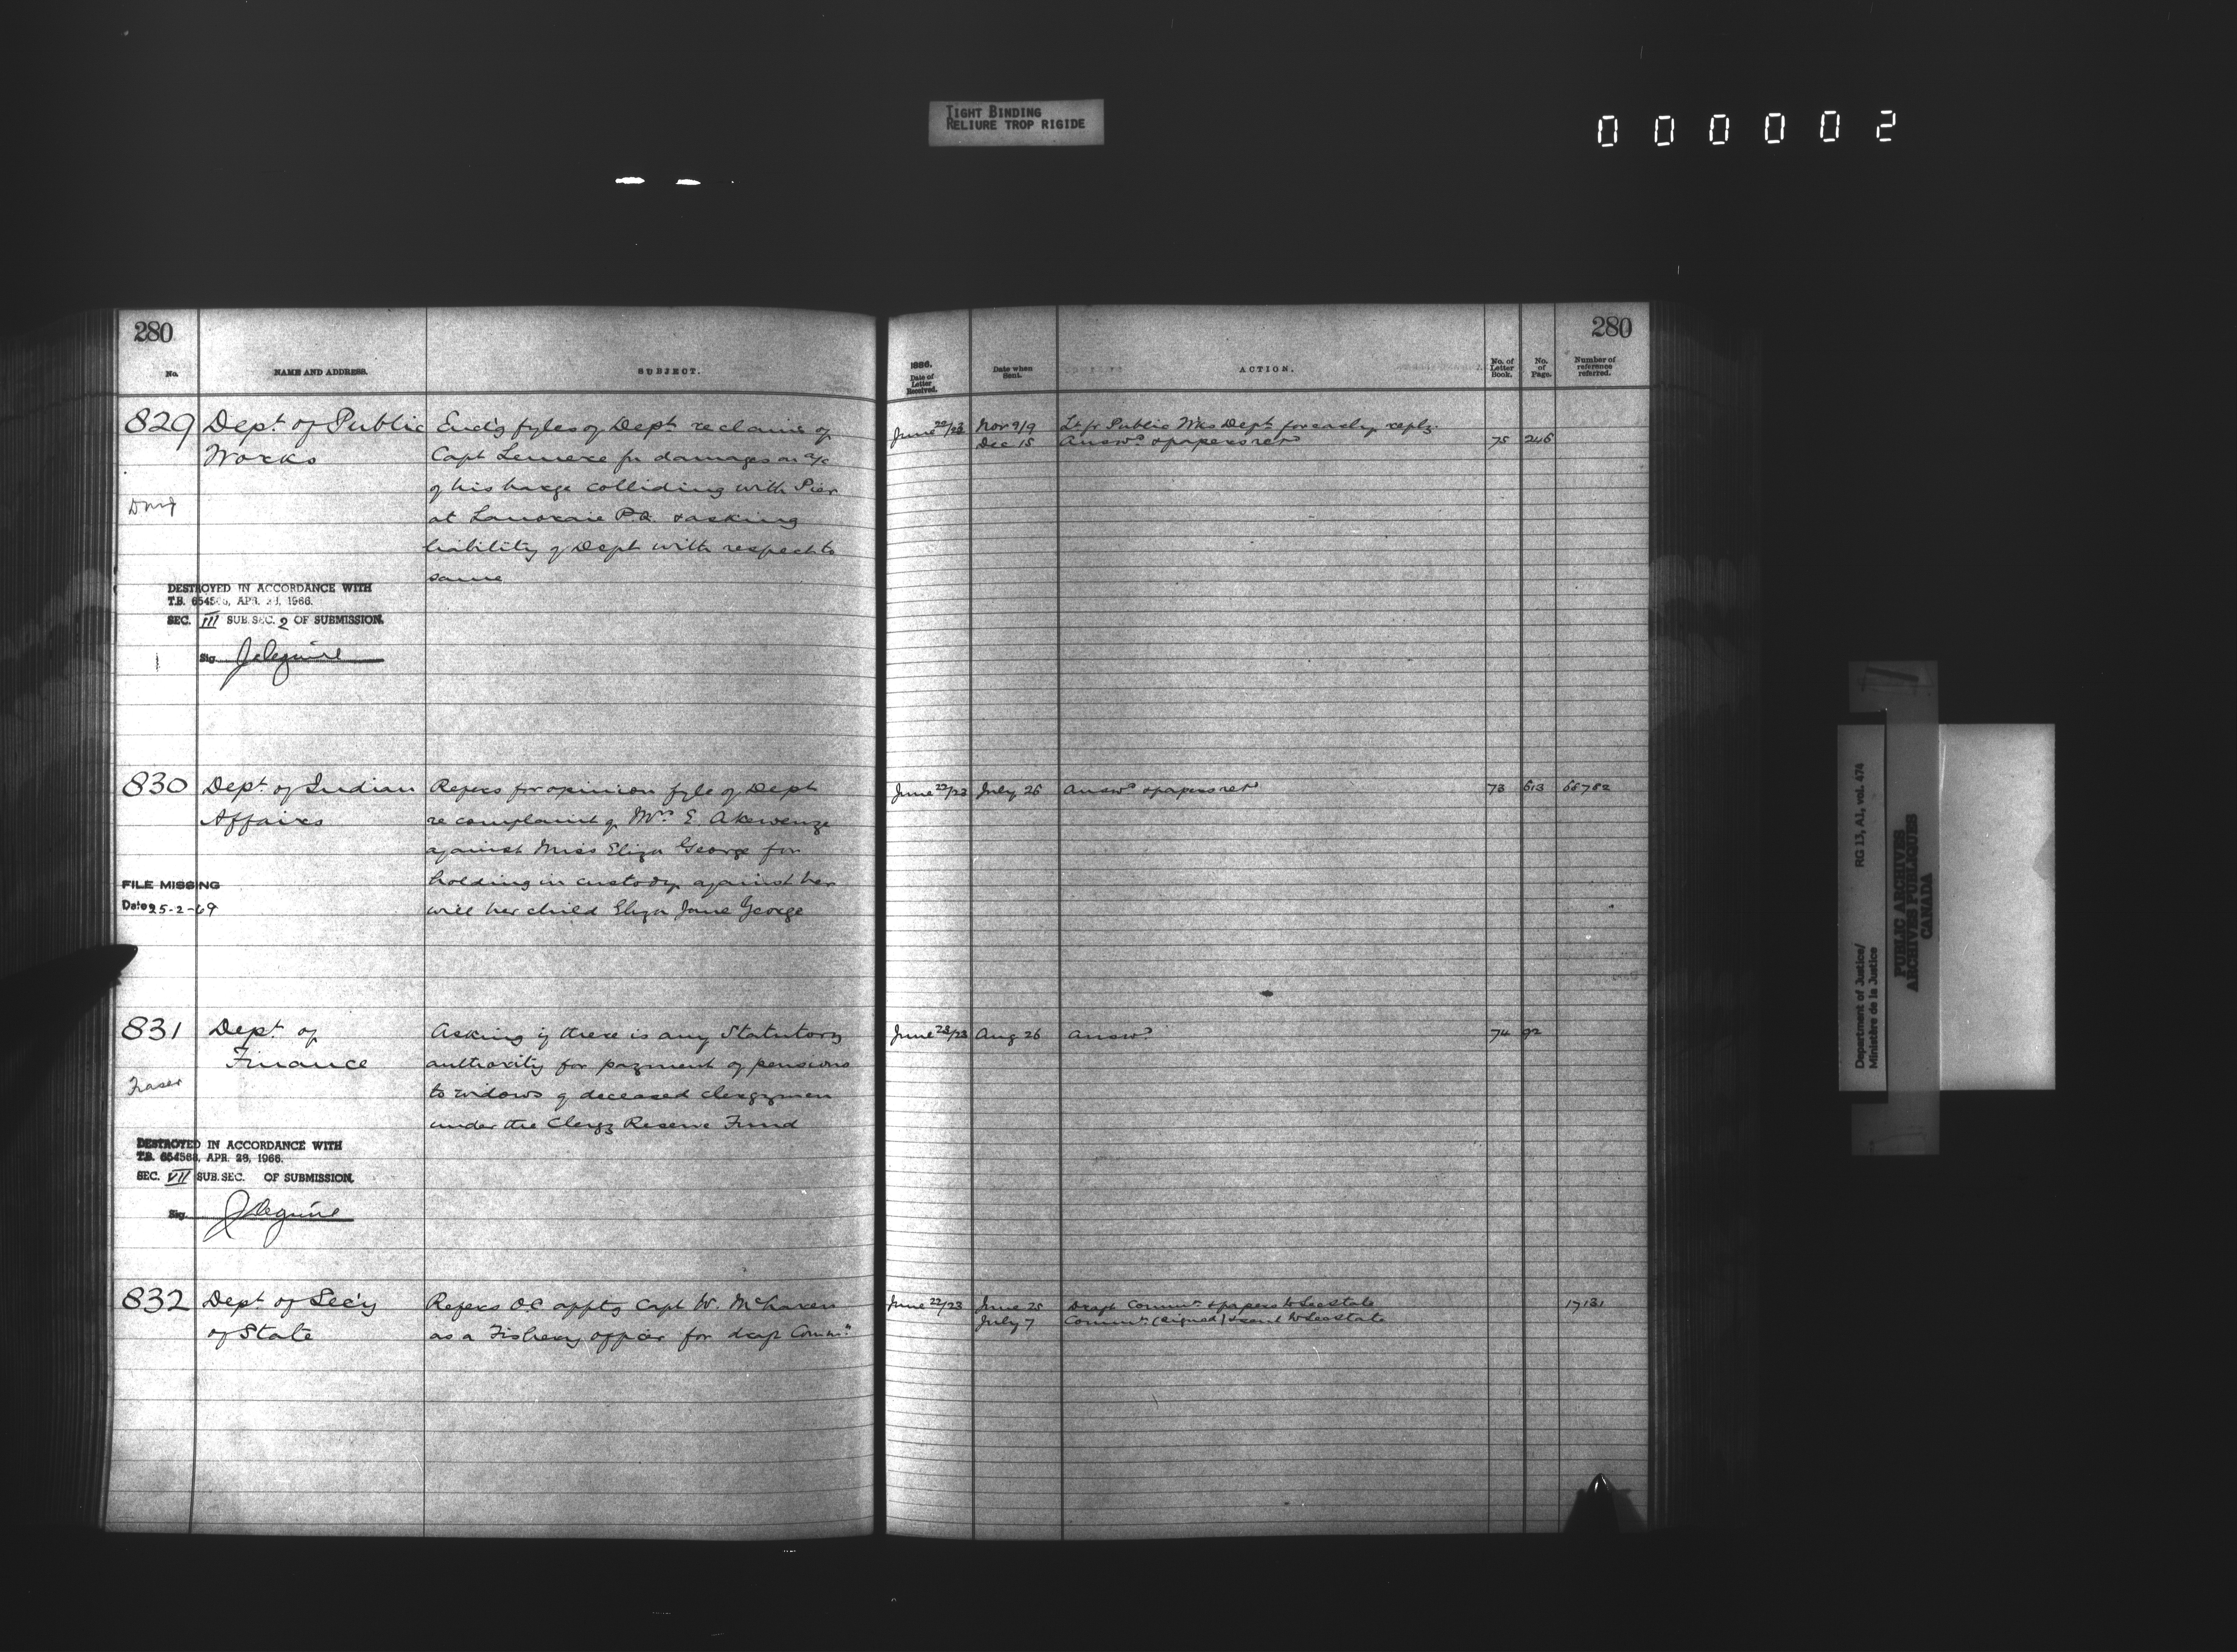 TIGHT BINDING
RELIURE TROP RIGIDE
000002
280
No.
NAME AND ADDRESS.
SUBJECT.
829 Dept. of Public
Works
Encl'g fyles of Dept. re claim of
Capt Lemere for damages on a/c
of his barge colliding with Pier
at Lanoraie P.Q. & asking
liability of Dept with respect to
same
DESTROYED IN ACCORDANCE WITH
T.B. 6545, APR. 1966.
SEC. III SUB. SEC. 2 OF SUBMISSION.
Sig. J Deguire
830 Dept. of Indian
Affairs
Refers for opinion fyle of Dept
re complaint of Mrs E. Akewenze
against Miss Eliza George for
holding in custody against her
will her child Eliza Jane George
FILE MISSING
Date 25-2-69
831 Dept. of
Finance
Fraser
Asking if there is any Statutory
authority for payment of pensions
to widows of deceased clergymen
under the Clergy Reserve Fund
DESTROYED IN ACCORDANCE WITH
T.B. 654568, APR. 28, 1966.
SEC. VII SUB. SEC. OF SUBMISSION.
Sig. J Deguire
832 Dept. of Sec'y
of State
Refers O.C. appt'g Capt W. McLaren
as a Fishery officer for draft Commn.
280
1886.
Date of
Letter
Received.
Date when
Sent.
ACTION.
No. of
Letter
Book.
No.
of
Page.
Number of
reference
referred.
June 22/23 Nov 9/9 Lr fr Public Wks Dept. for early reply.
Dec 15 Answd. & papers retd 75 246
June 22/23 July 26 Answd & papers retd 73 613 65782
June 23/23 Aug 26 Answd. 74 92
June 22/23 June 25 Draft Commn. & papers to Sec State 17131
July 7 Commn. (signed) & sent to Sec State
Department of Justice/ RG 13, A1, vol. 474
Ministère de la Justice
PUBLIC ARCHIVES
ARCHIVES PUBLIQUES
CANADA